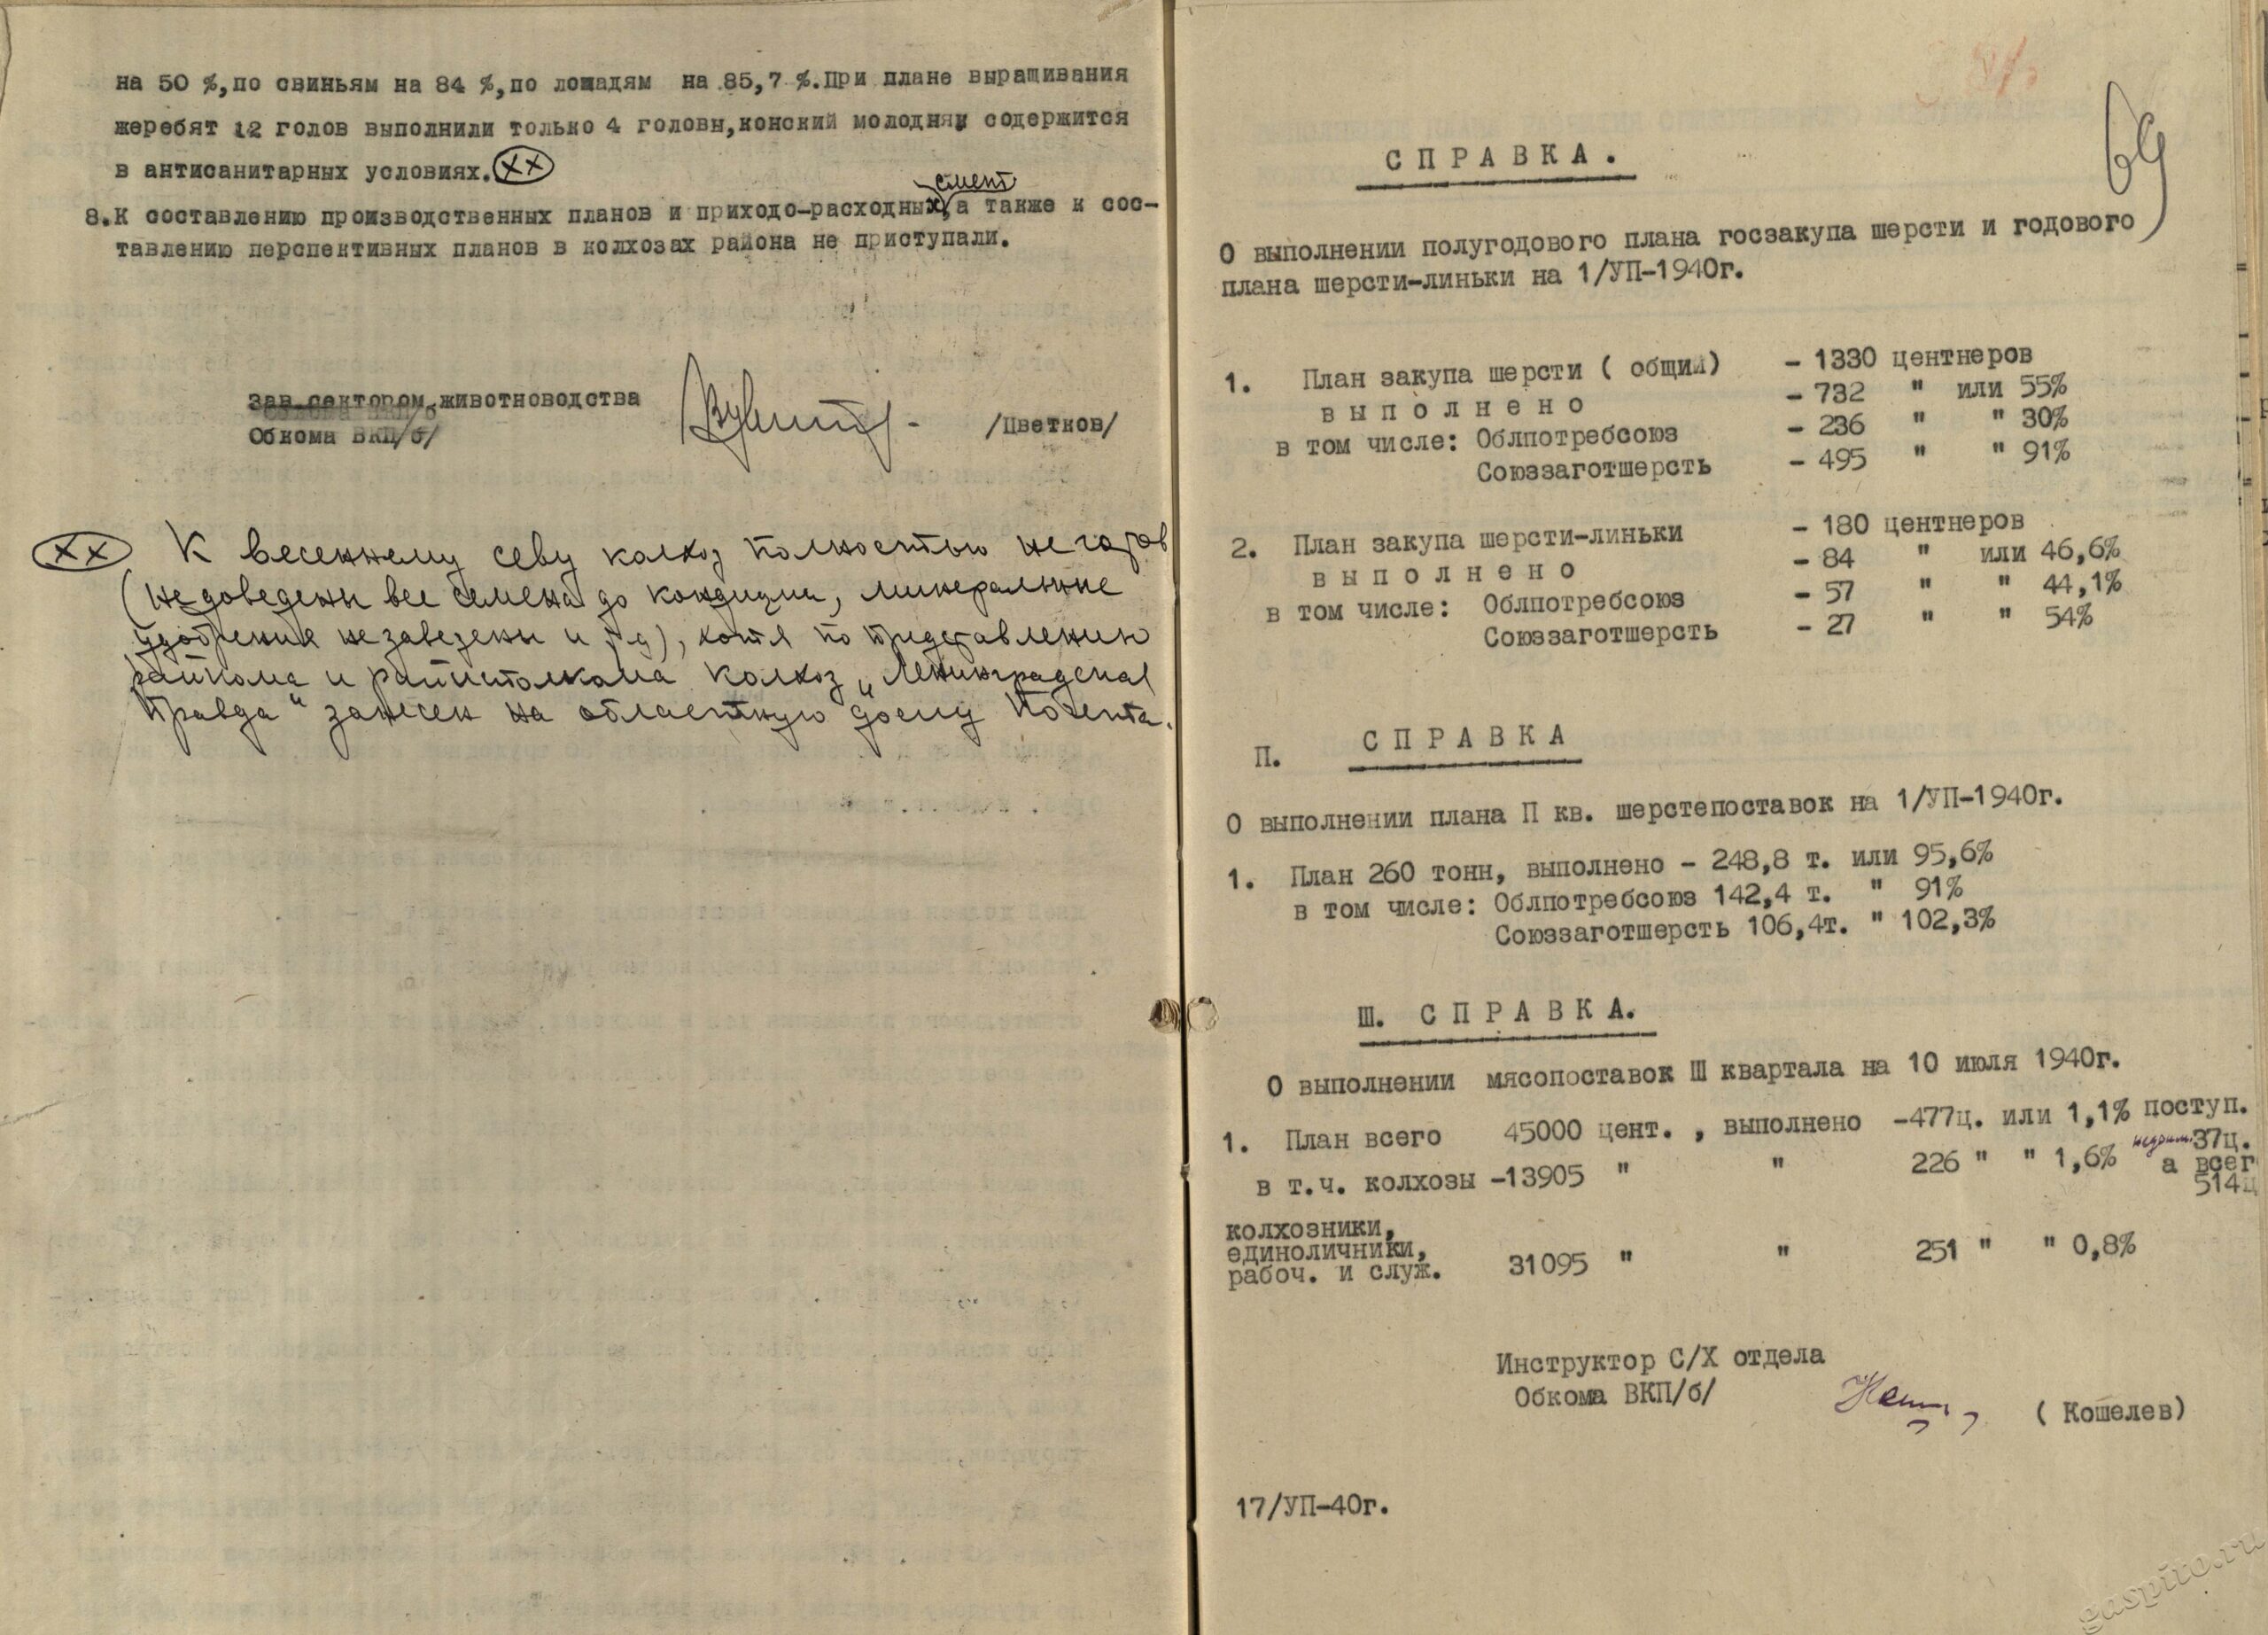 на 50 %,по свиньям на 84 %,по лошадям на 85,7 %.При плане выращивания
жеребят 12 голов выполнили только 4 головы,конский молодняк содержится
в антисанитарных условиях. ХХ
смет
8.К составлению производственных планов и приходо-расходных,а также к сос-
тавлению перспективных планов в колхозах района не приступали.
Зав.сектором животноводства
Обкома ВКП/б/
/Цветков/
ХХ К весеннему севу колхоз полностью не готов
(не доведены все семена до кондиции, минеральные
удобрения не завезены и т.д), хотя по представлению
райкома и райисполкома колхоз „Ленинградская
Правда" занесен на областную доску Почета.
69
СПРАВКА.
О выполнении полугодового плана госзакупа шерсти и годового
плана шерсти-линьки на 1/УП-1940г.
1. План закупа шерсти ( общий) - 1330 центнеров
выполнено - 732 " или 55%
в том числе: Облпотребсоюз - 236 " " 30%
Союззаготшерсть - 495 " " 91%
2. План закупа шерсти-линьки - 180 центнеров
выполнено - 84 " или 46,6%
в том числе: Облпотребсоюз - 57 " " 44,1%
Союззаготшерсть - 27 " " 54%
П. СПРАВКА
О выполнении плана П кв. шерстепоставок на 1/УП-1940г.
1. План 260 тонн, выполнено - 248,8 т. или 95,6%
в том числе: Облпотребсоюз 142,4 т. " 91%
Союззаготшерсть 106,4т. " 102,3%
Ш. СПРАВКА.
О выполнении мясопоставок Ш квартала на 10 июля 1940г.
1. План всего 45000 цент. , выполнено -477ц. или 1,1% поступ.
недоим. 37ц.
в т.ч. колхозы -13905 " " 226 " " 1,6% а всег
514ц
колхозники,
единоличники,
рабоч. и служ. 31095 " " 251 " " 0,8%
Инструктор С/Х отдела
Обкома ВКП/б/
( Кошелев)
17/УП-40г.
gaspito.ru